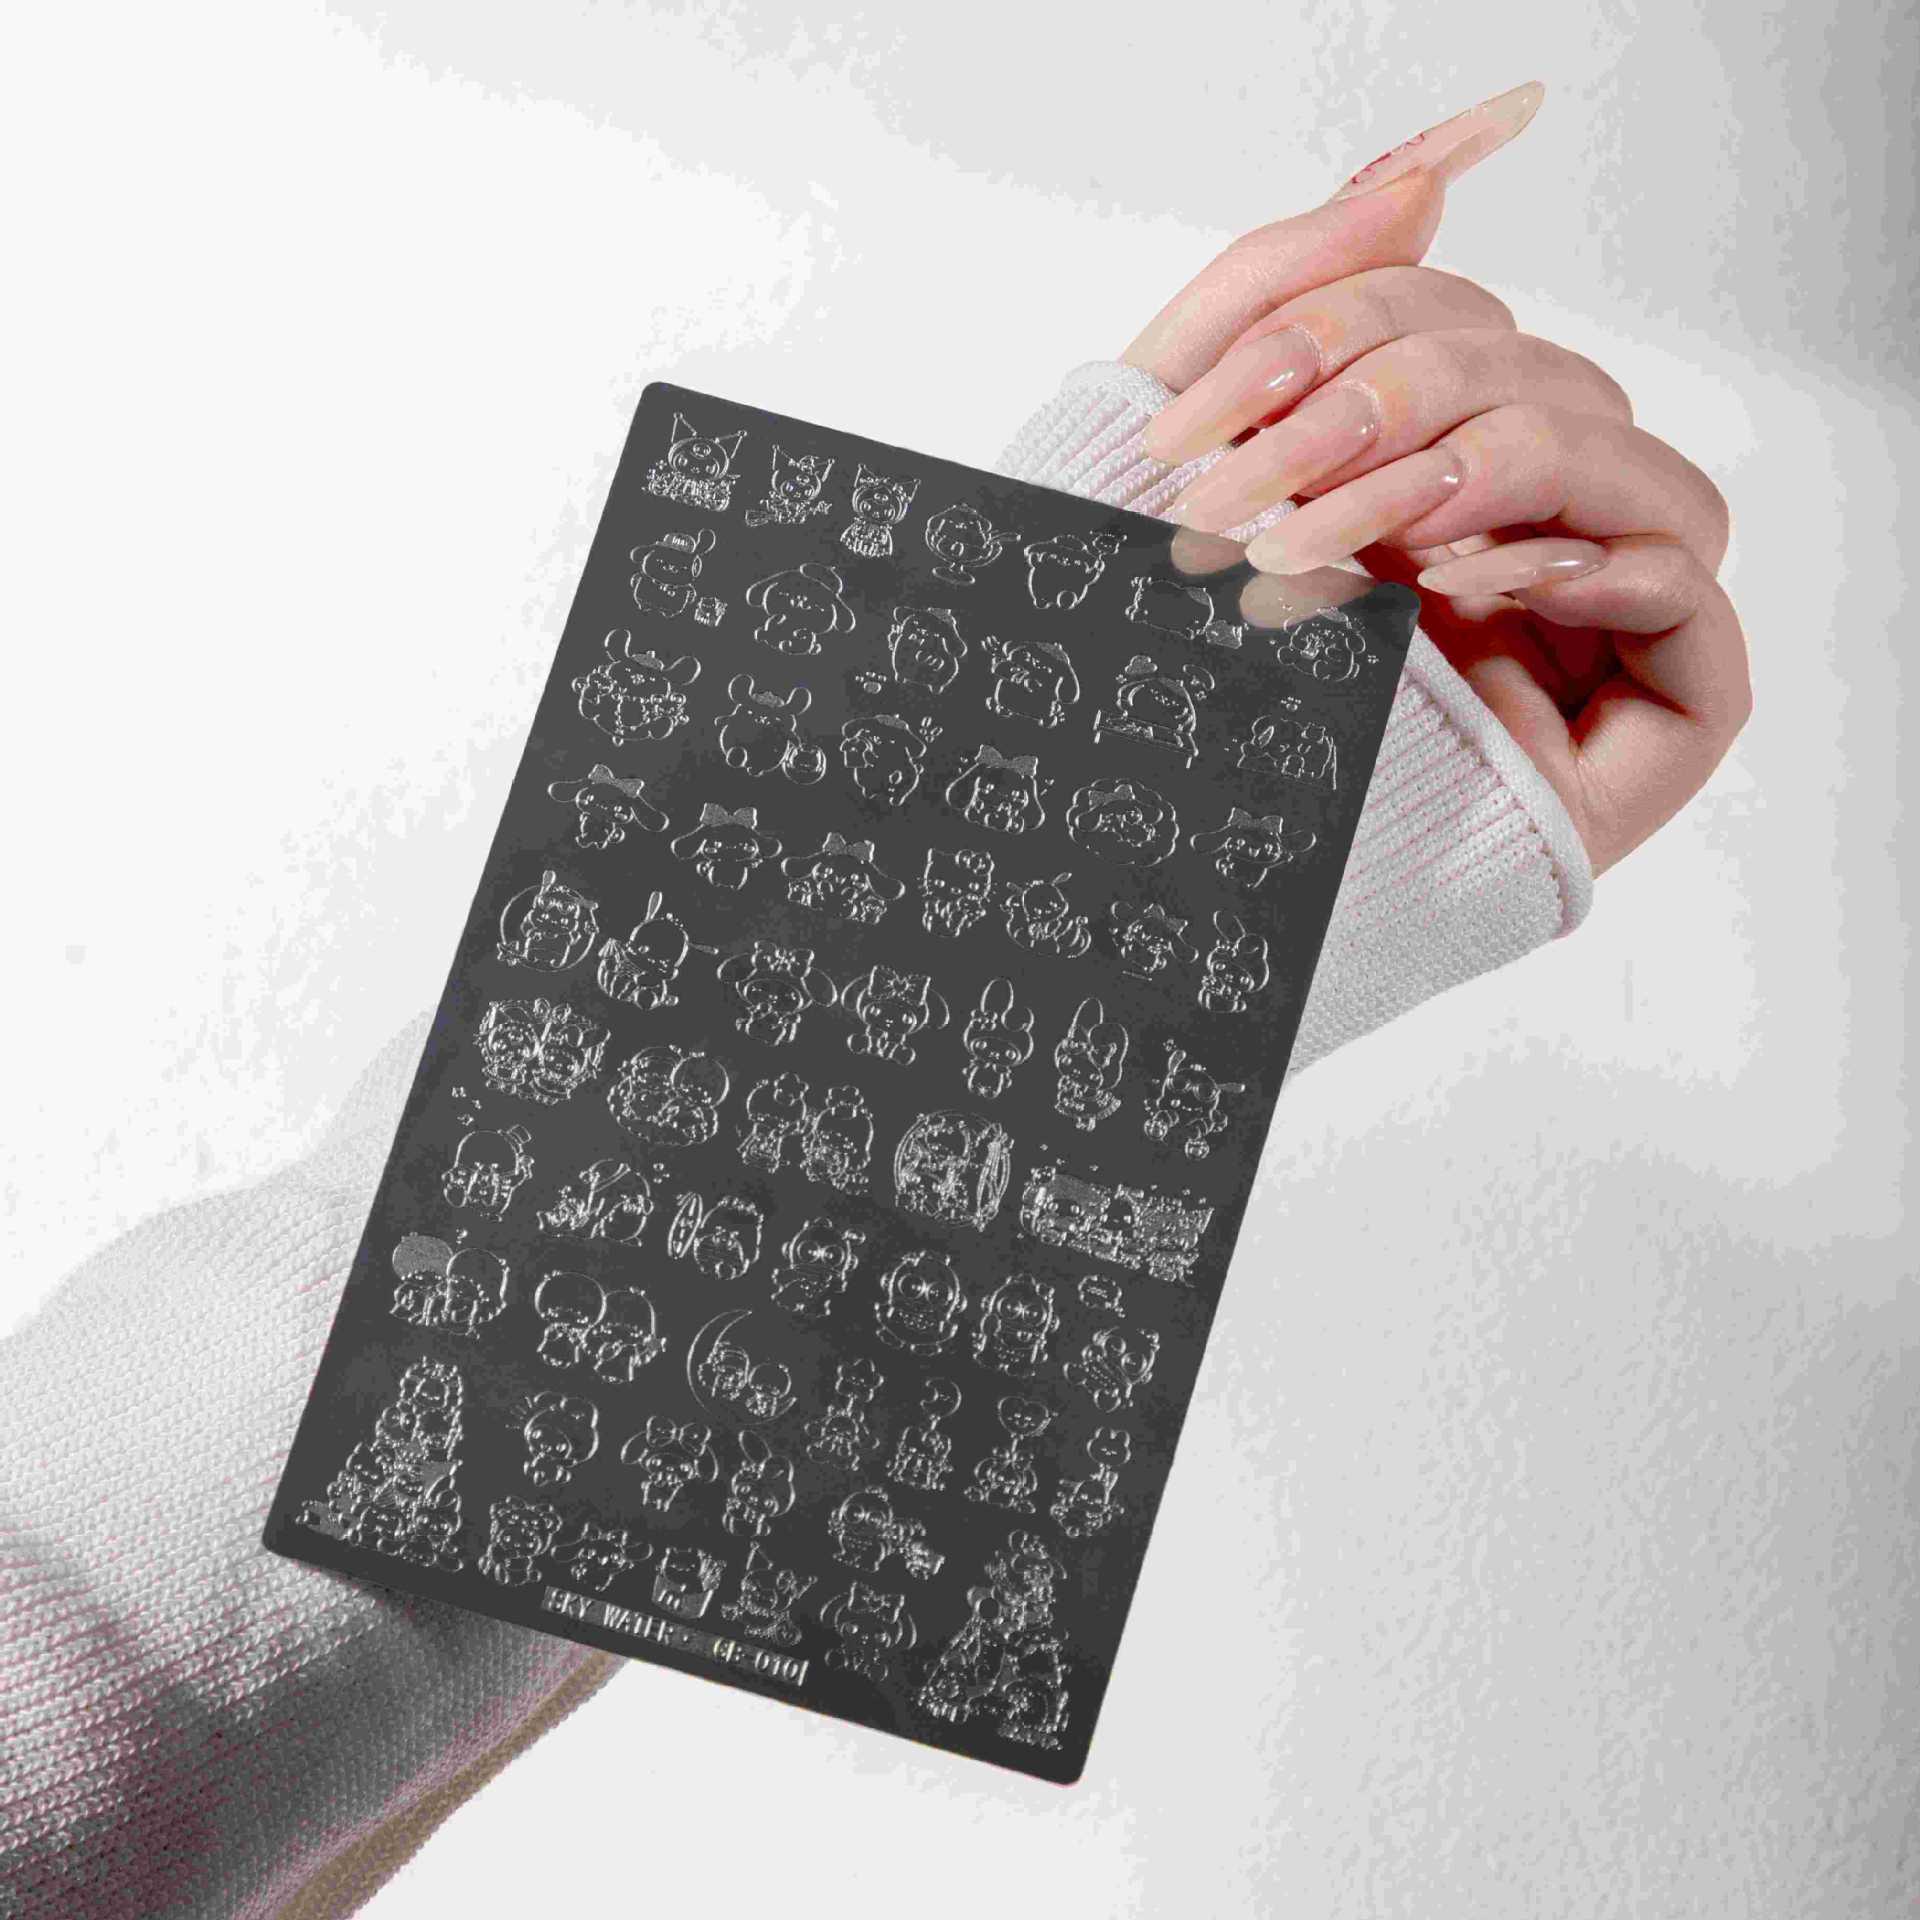 SKY WATER - CB-010